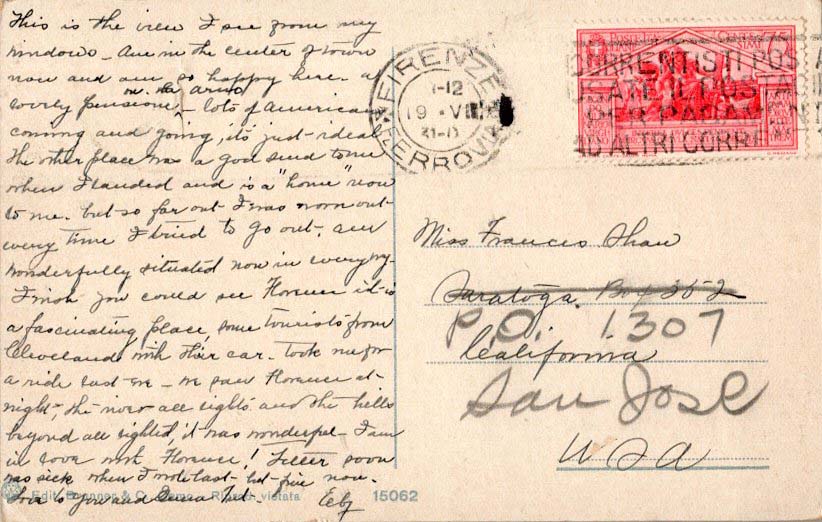 This is the view I see from my
windows - Am in the center of town
now and am so happy here. a
lovely pensione on the arno - lots of Americans
coming and going, it's just ideal
the other place was a god send to me
when I landed and is a "home" now
to me. but so far out I was worn out
every time I tried to go out. am
wonderfully situated now in every way.
I wish you could see Florence it is
a fascinating place some tourists from
Cleveland with their car. Took me for
a ride last eve - we saw Florence at
night, the river all lights and the hills
beyond all lighted, it was wonderful - I am
in love with Florence! Letter soon
was sick when I wrote last - but fine now.
Love to you and
FIRENZE
FERROVIA
1-12
19 · VII
POSTE ITALIANE
CORRENTISTI POSTALI
POSTAGIRO
AD ALTRI CORRE
Miss Frances Shaw
Saratoga. Box 352
P.O. 1307
California
San Jose
USA
Edit. Brunner & C., Como. Riprod. vietata
15062